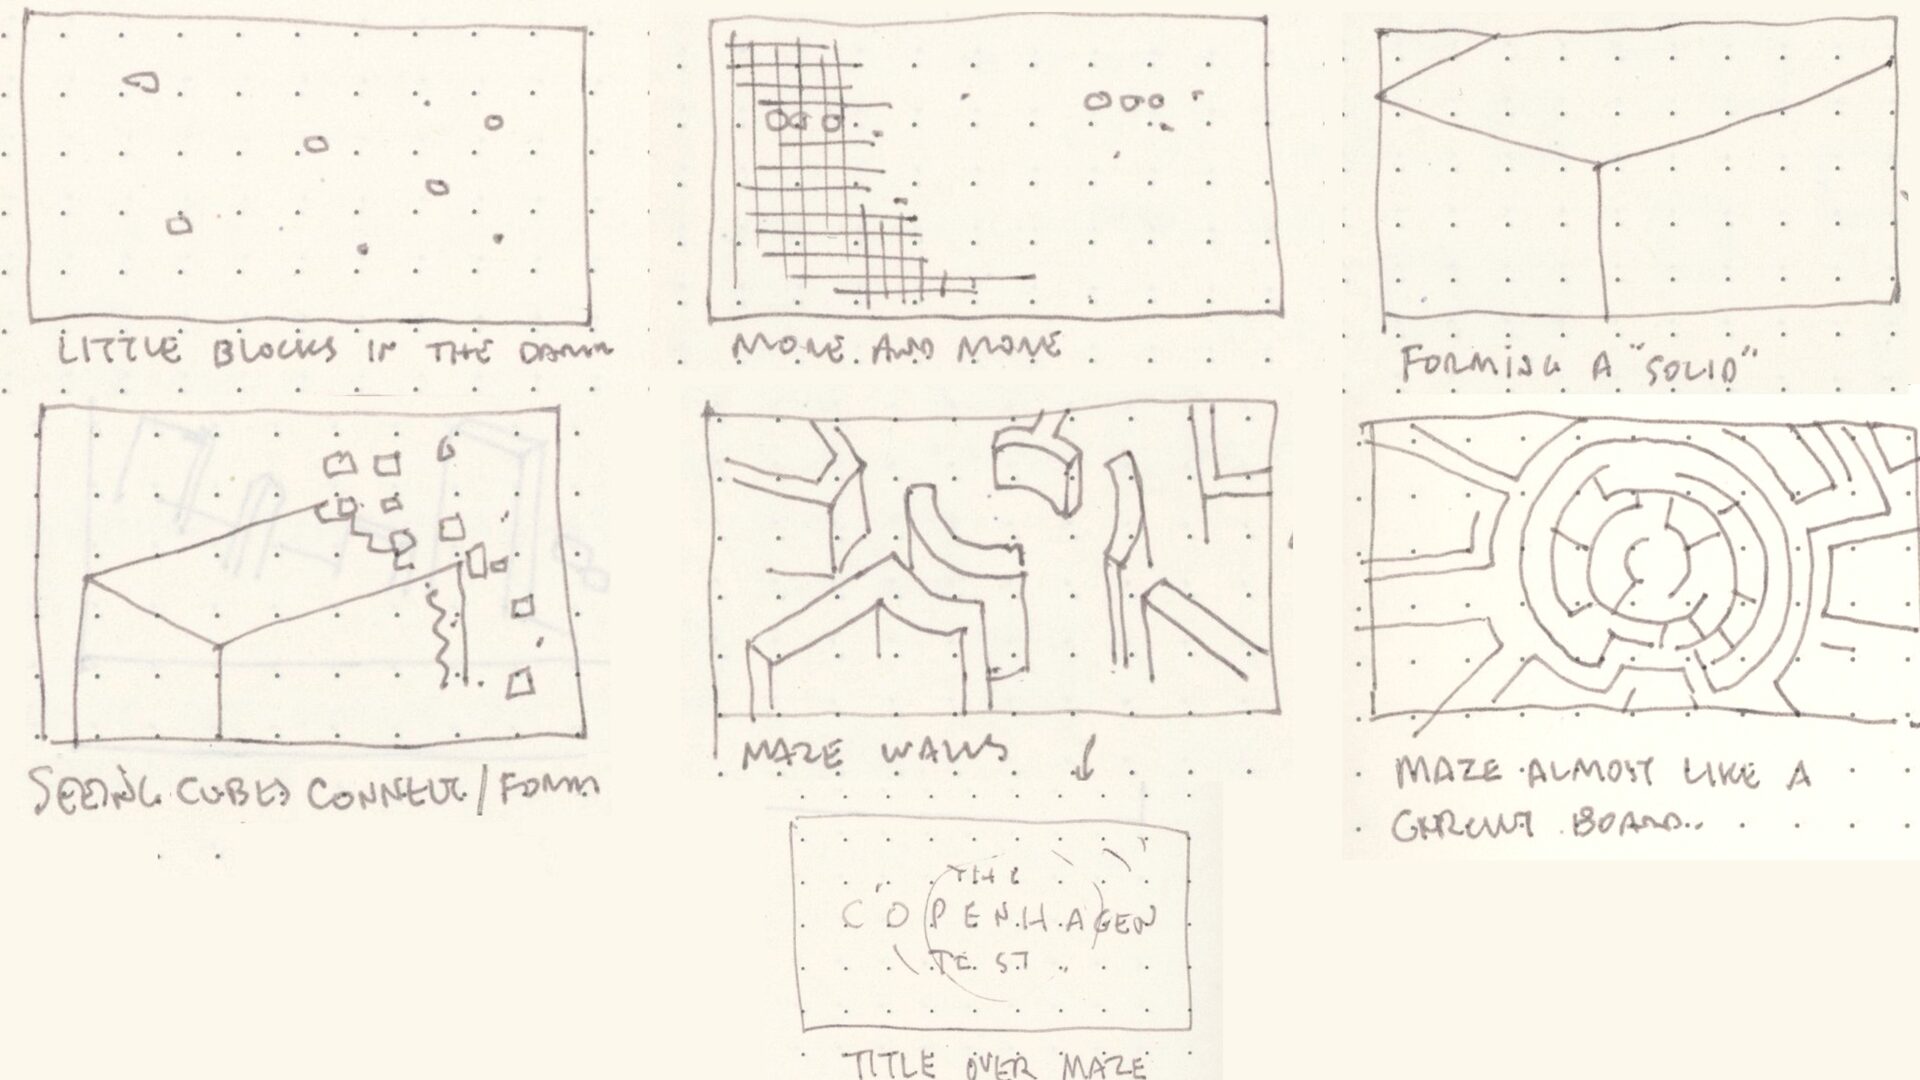 LITTLE BLOCKS IN THE DARK
MORE AND MORE
FORMING A "SOLID"
SEEING CUBES CONNECT / FORM
MAZE WALLS
MAZE ALMOST LIKE A
CIRCUIT BOARD..
THE
COPENHAGEN
TEST
TITLE OVER MAZE